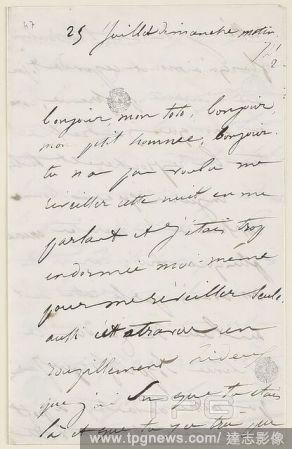 47
25 juillet dimanche matin
7h ½
bonjour mon toto, bonjour,
mon ptit homme, bonjour.
tu n'a pas voulu me
réveiller cette nuit en me
parlant et j'étais trop
endormie moi-même
pour me réveiller seule
aussi
en
que
su que tu étais
là et que tu
TPG
www.tpgnews.com / 達志影像